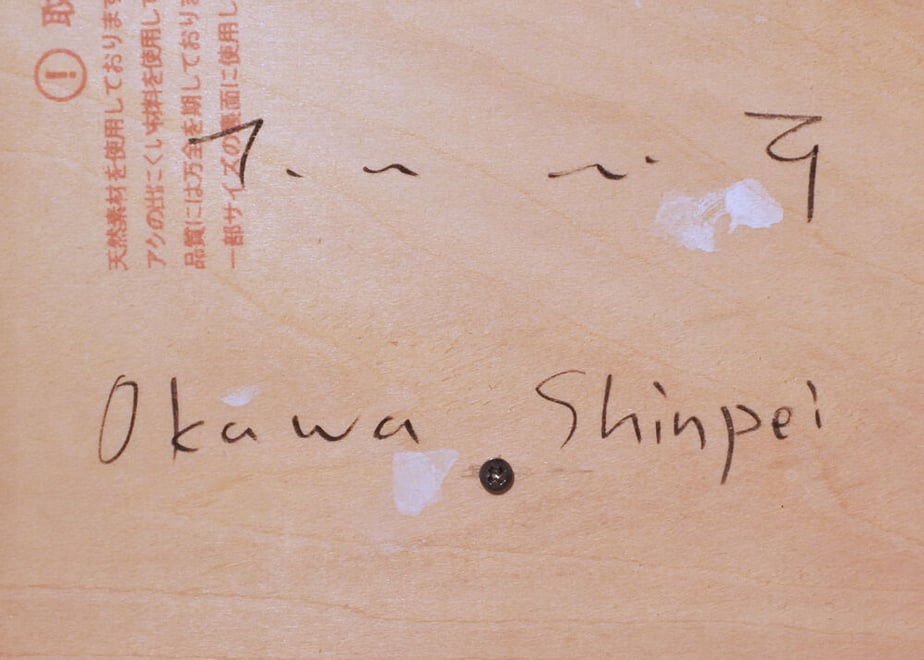 取
天然素材を使用しております
アクの出にくい材料を使用して
品質には万全を期しており
一部サイズの裏面に使用し
Okawa Shinpei